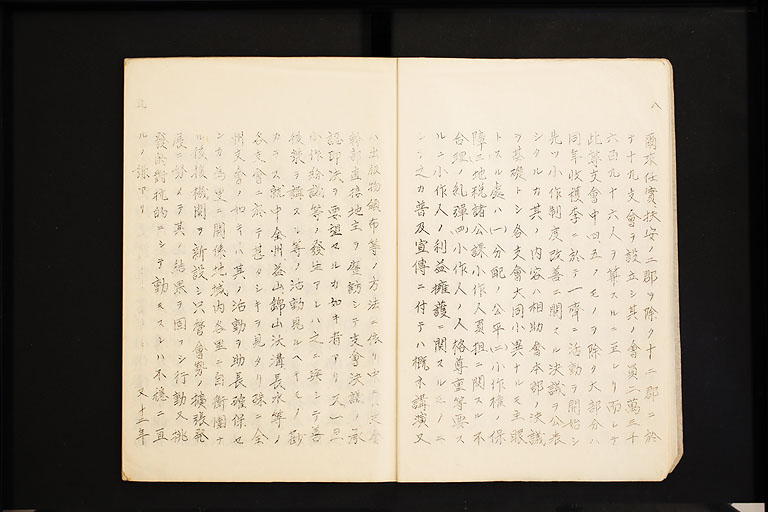 八
爾來任實扶安ノ二郡ヲ除ク十二郡ニ於
テ十九支會ヲ設立シ其ノ會員二萬三千
六百九十六人ヲ算スルニ至レリ而シテ
此等支會中四、五ノモノヲ除ク大部分ハ
同年收穫季ニ於テ一齊ニ活動ヲ開始シ
先ツ小作制度改善ニ關スル決議ヲ公表
シタルカ其ノ內容ハ相助會本部ノ決議
ヲ基礎トシ各支會大同小異ナルモ主眼
トスル處ハ一分配ノ公平(二)小作權ノ保
障三地稅諸公課小作人負担ニ關スル不
合理ノ糺彈四小作人ノ人格尊重等要ス
ルニ小作人ノ利益擁護ニ關スルモノニ
シテ之カ普及宣傳ニ付テハ概ネ講演又
九
ハ出版物頒布等ノ方法ニ依リ中ニハ支會
幹部直接地主ヲ歷訪シテ支會決議ノ承
認印決ヲ要望セルカ如キ者アリ又一旦
小作紛議等ノ發生アレハ之ニ應シテ善
後策ヲ講スル等ノ活動見ルヘキモノ尠
カラス就中全州益山錦山沃溝長水等ノ
各支會ニ於テ甚タシキヲ見タリ殊ニ全
州支會ノ如キハ其ノ活動ヲ助長確保セ
ンカ爲里ニ關係地域內各里ニ自衛團ナ
ル後援機關ヲ新設シ只管會勢ノ擴張發
展ニ努メヲ其ノ結果ヲ固フシ行動又挑
發的對抗的ニシテ動モスレハ不穩ニ亘
ルノ嫌アリ　又十二年